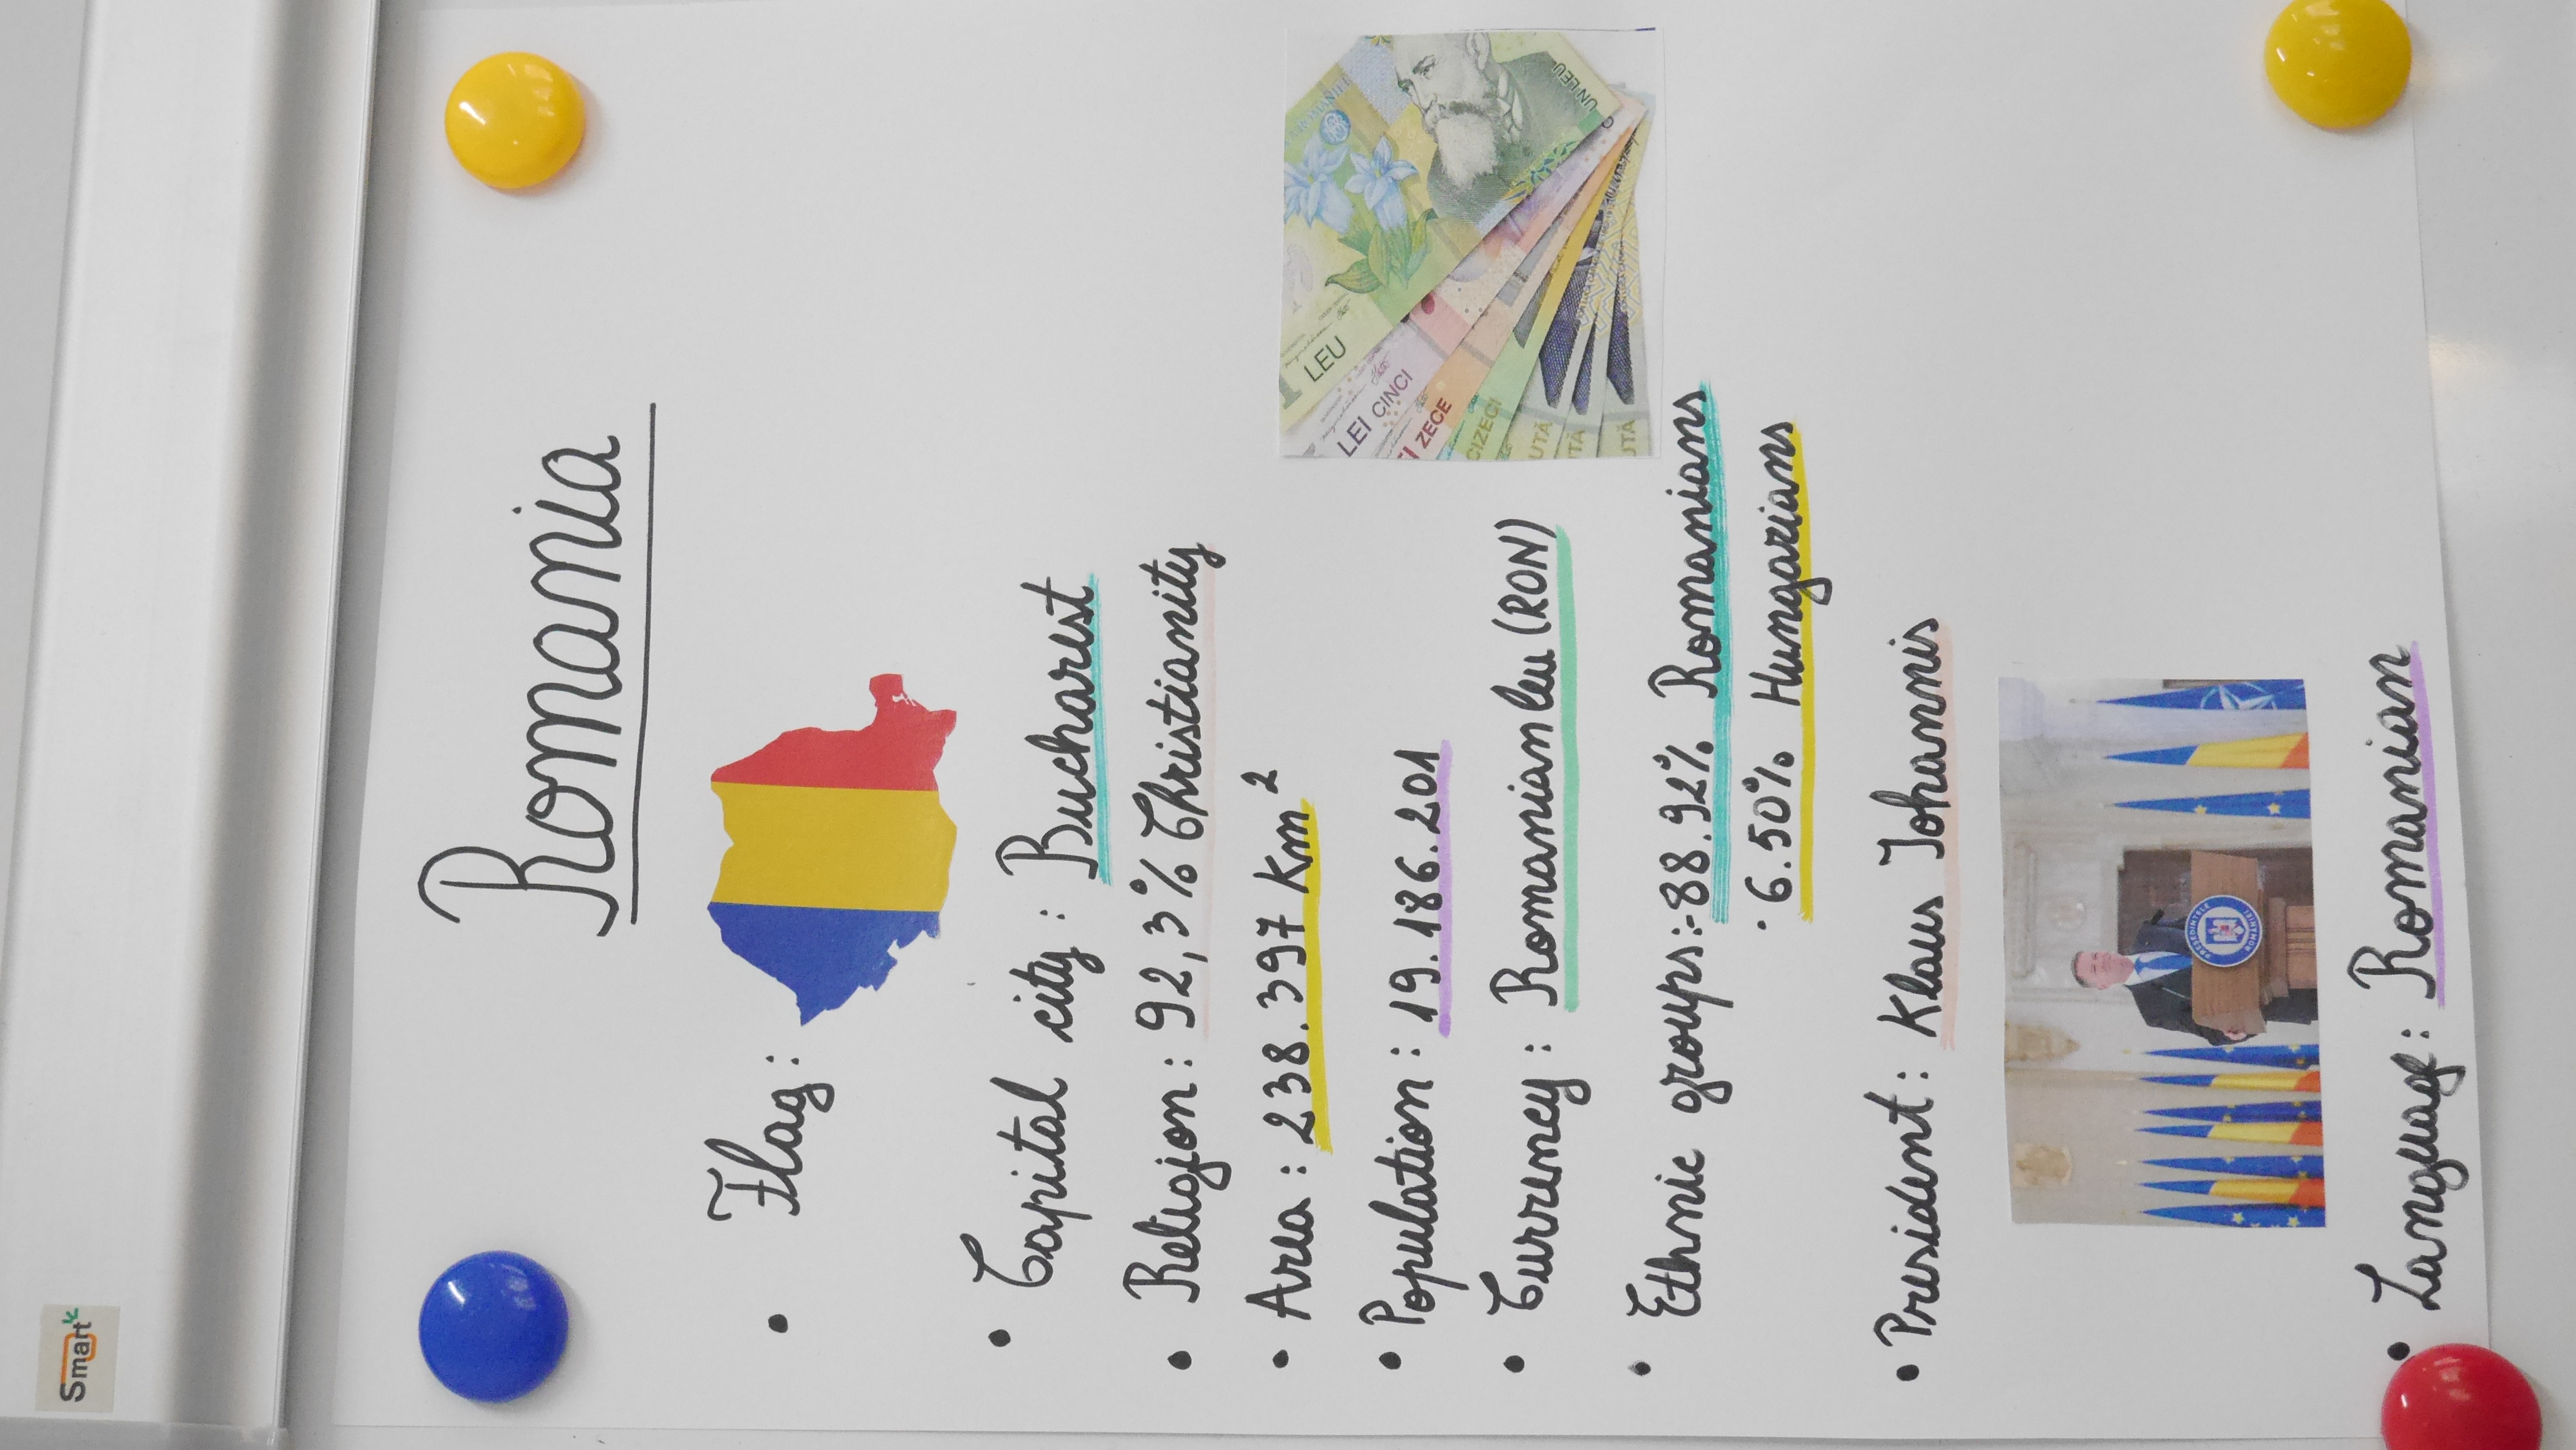 Smart
Romania
• Flag:
• Capital city: Bucharest
• Religion: 92,3% Christianity
• Area: 238.397 Km²
• Population: 19.186.201
• Currency: Romanian leu (RON)
1 LEU
UN LEU
LEI CINCI
ZECE
CIZECI
UTĂ
TĂ
UTĂ
• Ethnic groups:-88.92% Romanians
· 6.50% Hungarians
• President: Klaus Iohannis
PREȘEDINTELE ROMÂNIEI
• Language: Romanian